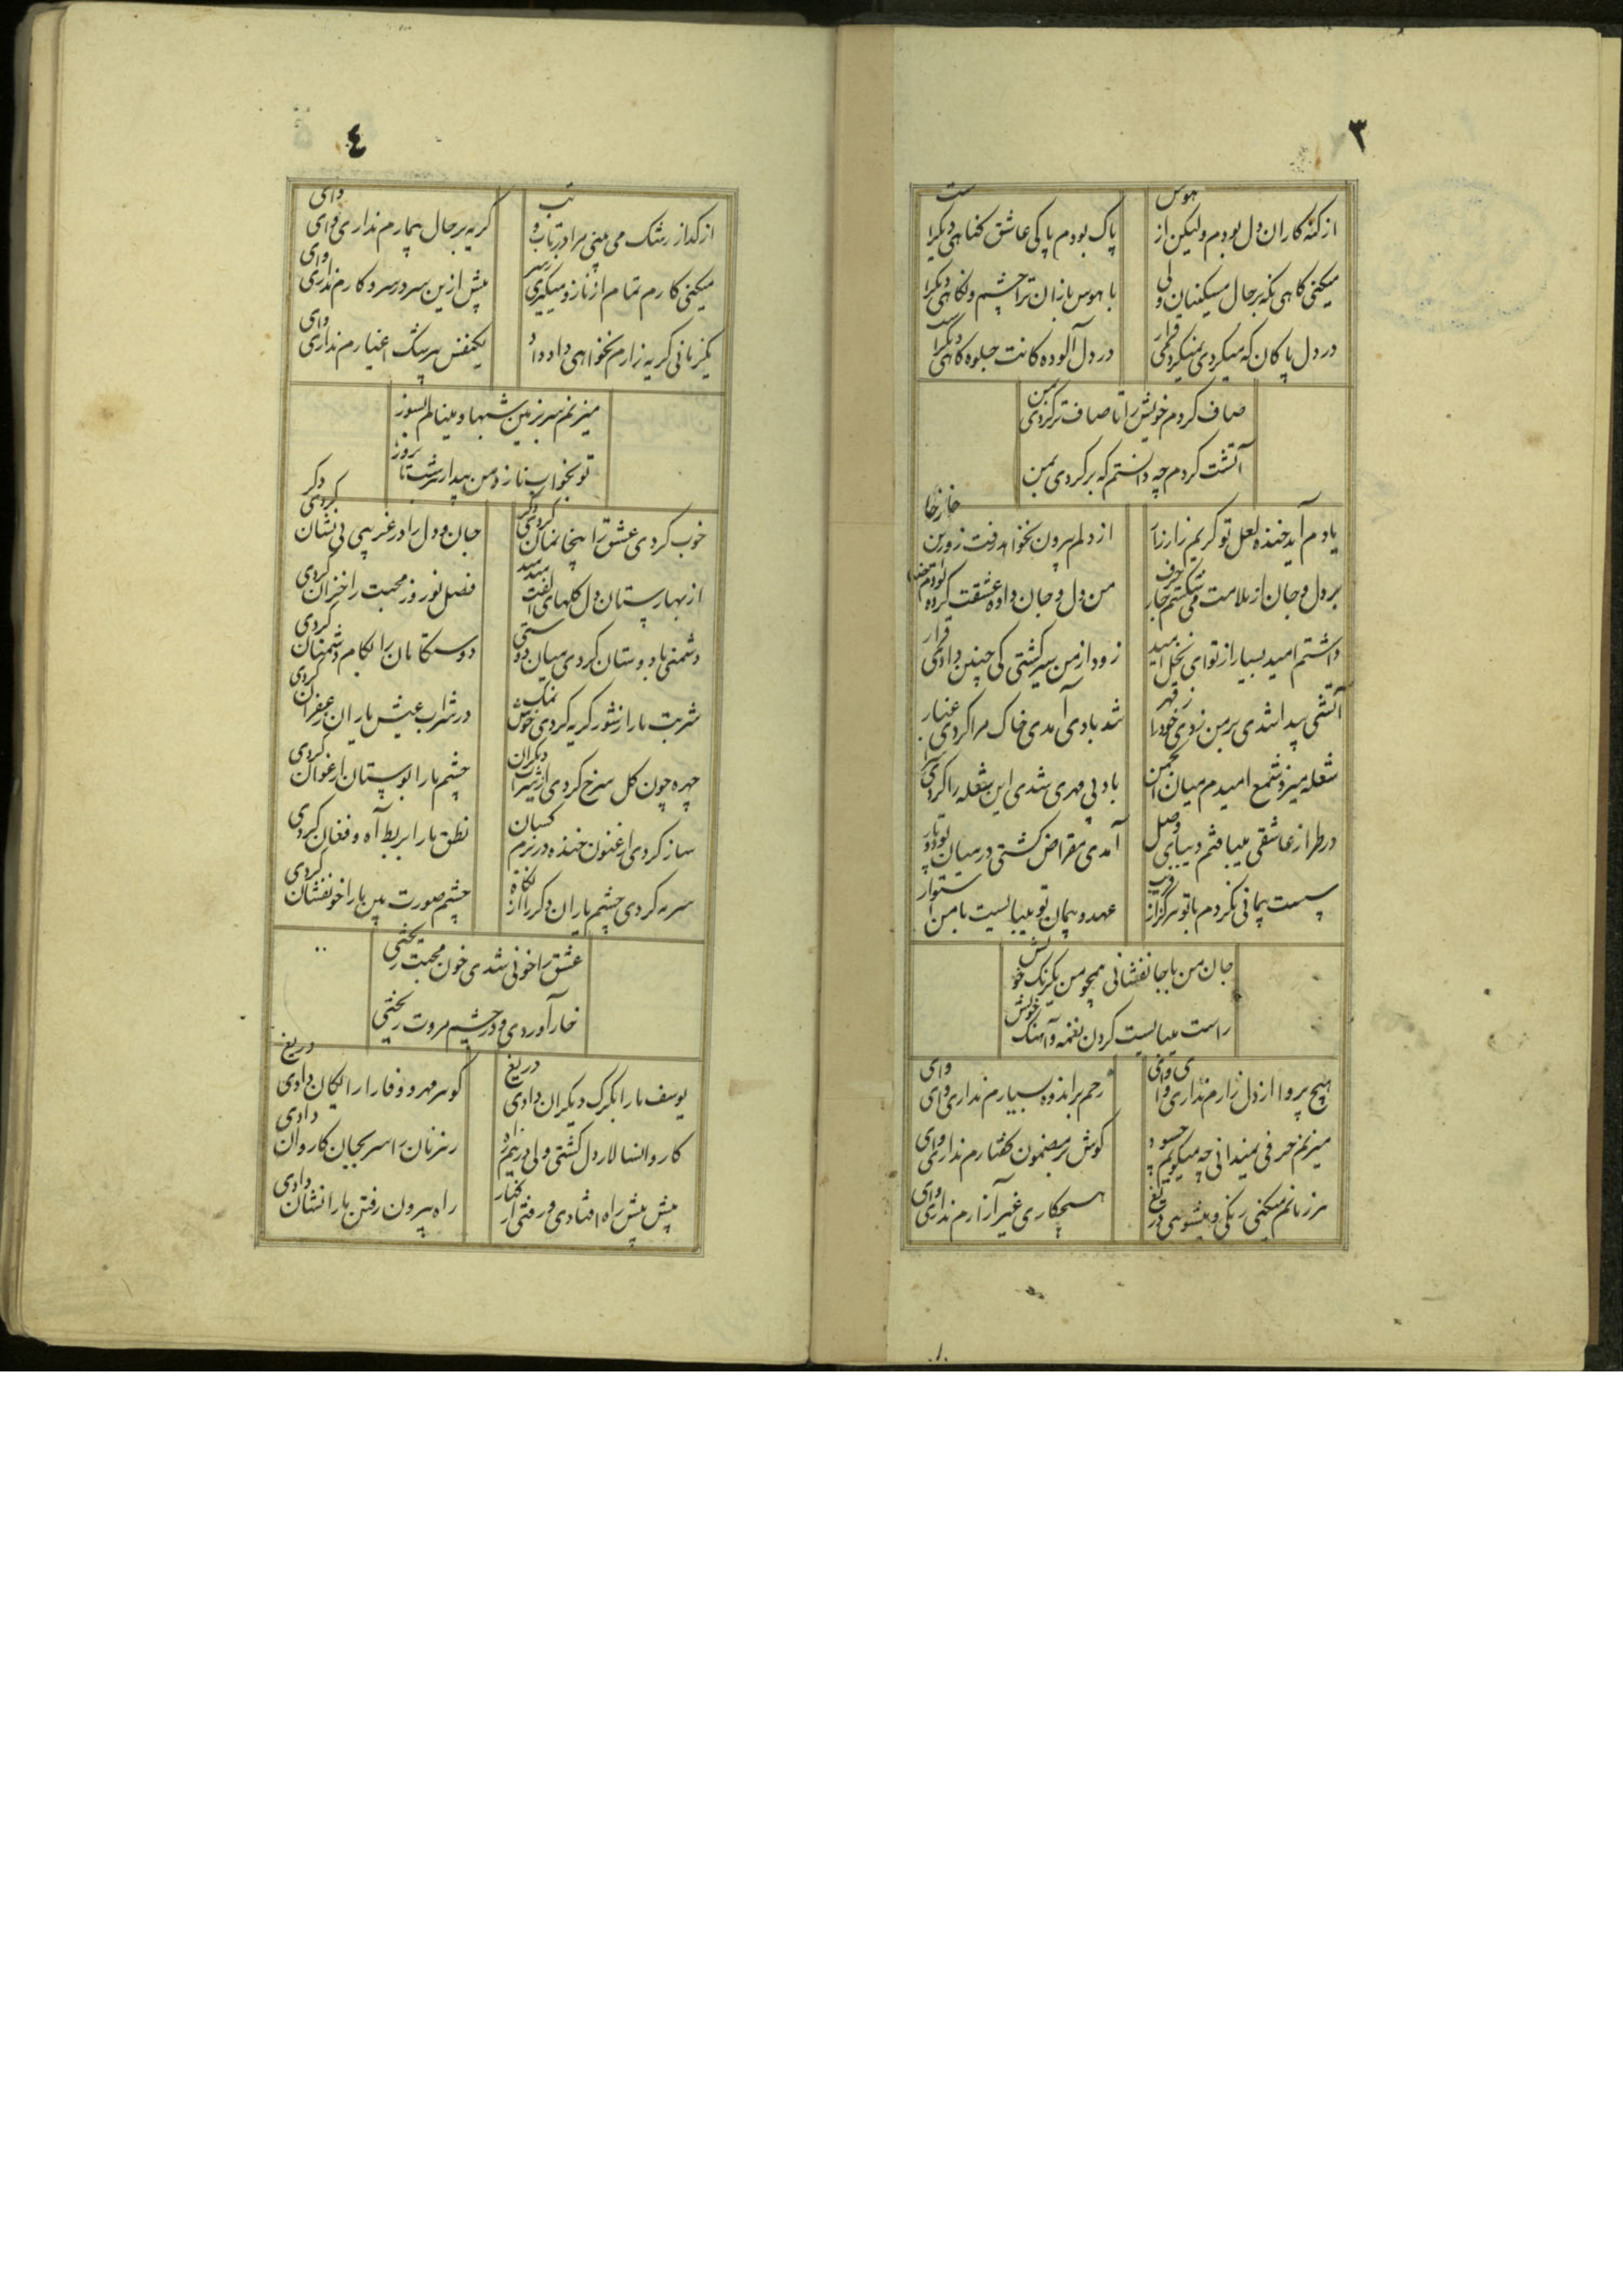 ٣
از کنه کاران دل بودم ولیکن از هوس
پاک بودم پاکی عاشق کناهی دیکرست
میکنی کاهی نکه بر حال مسکینان ولی
با هوس بازان ترا چشم و نکاهی دیکرست
در دل پاکان که میکردی نمیکردی قرار
در دل آلوده کانت جلوه کاهی دیکرست
صاف کردم خویش را تا صاف تر کردی بمن
آتشت کردم چه دانستم که بر کردی بمن
یادم آید خنده لعل تو کریم زار زار
از دلم بیرون نخواهد رفت زورین خار خار
بر دل و جان از ملامت می شکستم خار حرف
من دل و جان داده عشقت کرده بودم
داشتم امید بسیار از تو ای نخل امید
زود از من سیر کشتی کی چنین دادی قرار
آتشی پیدا شدی بر من زدی خود را ز قهر
شد بادی آمدی خاک مرا کردی غبار
شعله میزد شمع امیدم میان انجمن
باد بی مهری شدی این شعله را کردی
در طراز عاشقی میبافتم دیبای وصل
آمدی مقراض کشتی در میان پود و تار
سست پیمانی نکردم با تو هرکز از
عهد و پیمان تو میبایست با من استوار
جان من با جانفشانی همچو من یکرنک خویش
راست میبایست کردن نغمه و آهنک خویش
هیچ پروا از دل زارم نداری وای وای
رحم بر اندوه بسیارم نداری وای وای
میزنم حرفی نمیدانی چه میکویم چه سود
کوش بر مضمون کفتارم نداری وای وای
هر زمانم میکنی رنکی و میشویی دریغ
هیچکاری غیر آزارم نداری وای وای
٤
از کداز رشک می بینی مرا در تاب و تب
کریه بر حال بیمارم نداری وای وای
میکنی کارم تمام از ناز و میکیری ز سر
بیش ازین سر در سر و کارم نداری وای
یکزمانی کریه زارم نخواهی داد داد
یکنفس بی رشک اغیارم نداری وای
میزنم سر بر زمین شبها و مینالم بسوز
تو بخواب ناز و من بیدار شب تا بروز
خوب کردی عشق را بیخانمان کردی دکر
جان و دل را در غریبی بی نشان کردی دکر
از بهارستان دل کلهای الفت
فصل نوروز محبت را خزان کردی
دشمنی با دوستان کردی میان دوستی
دوستکامان را بکام دشمنان کردی
شربت ما را ز شور کریه کردی خوش نمک
در شراب عیش یاران زعفران کردی
چهره چون کل سرخ کردی از شراب دیکران
چشم ما را بوستان ارغوان کردی
ساز کردی ارغنون خنده در بزم کسان
نطق ما را بربط آه و فغان کردی
سرمه کردی چشم یاران دکر را از نکاه
چشم صورت بین ما را خونفشان کردی
عشق را خونی شدی خون محبت ریختی
خار آوردی و در چشم مروت ریختی
یوسف ما را بکرک دیکران دادی دریغ
کوهر مهر و وفا را رایکان دادی دریغ
کاروانسالار دل کشتی ولی در نیم راه
رهزنان را سر بجان کاروان دادی
پیش پیش راه افتادی و رفتی از کنار
راه بیرون رفتن ما را نشان دادی